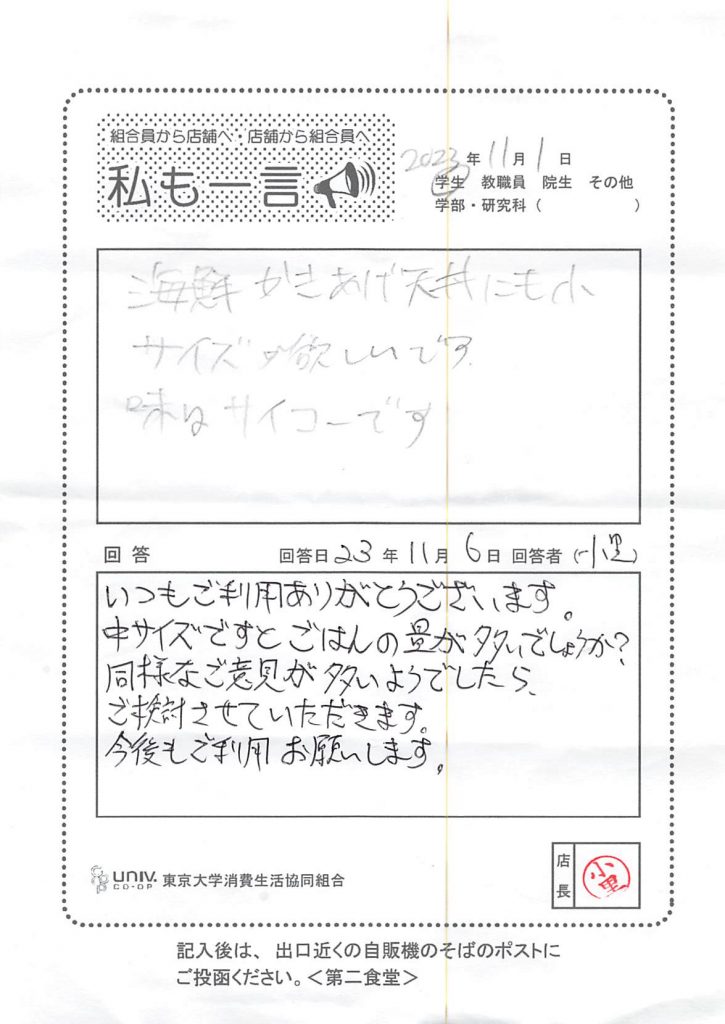 組合員から店舗へ 店舗から組合員へ
私も一言
2023年11月1日
学生 教職員 院生 その他
学部・研究科( )
海鮮かきあげ天丼にも小
サイズが欲しいです
味はサイコーです
回答 回答日23年11月6日 回答者(小里)
いつもご利用ありがとうございます。
中サイズですとごはんの量が多いでしょうか?
同様なご意見が多いようでしたら、
ご検討させていただきます。
今後もご利用お願いします。
UNIV. CO-OP 東京大学消費生活協同組合
店長 小里
記入後は、出口近くの自販機のそばのポストに
ご投函ください。<第二食堂>